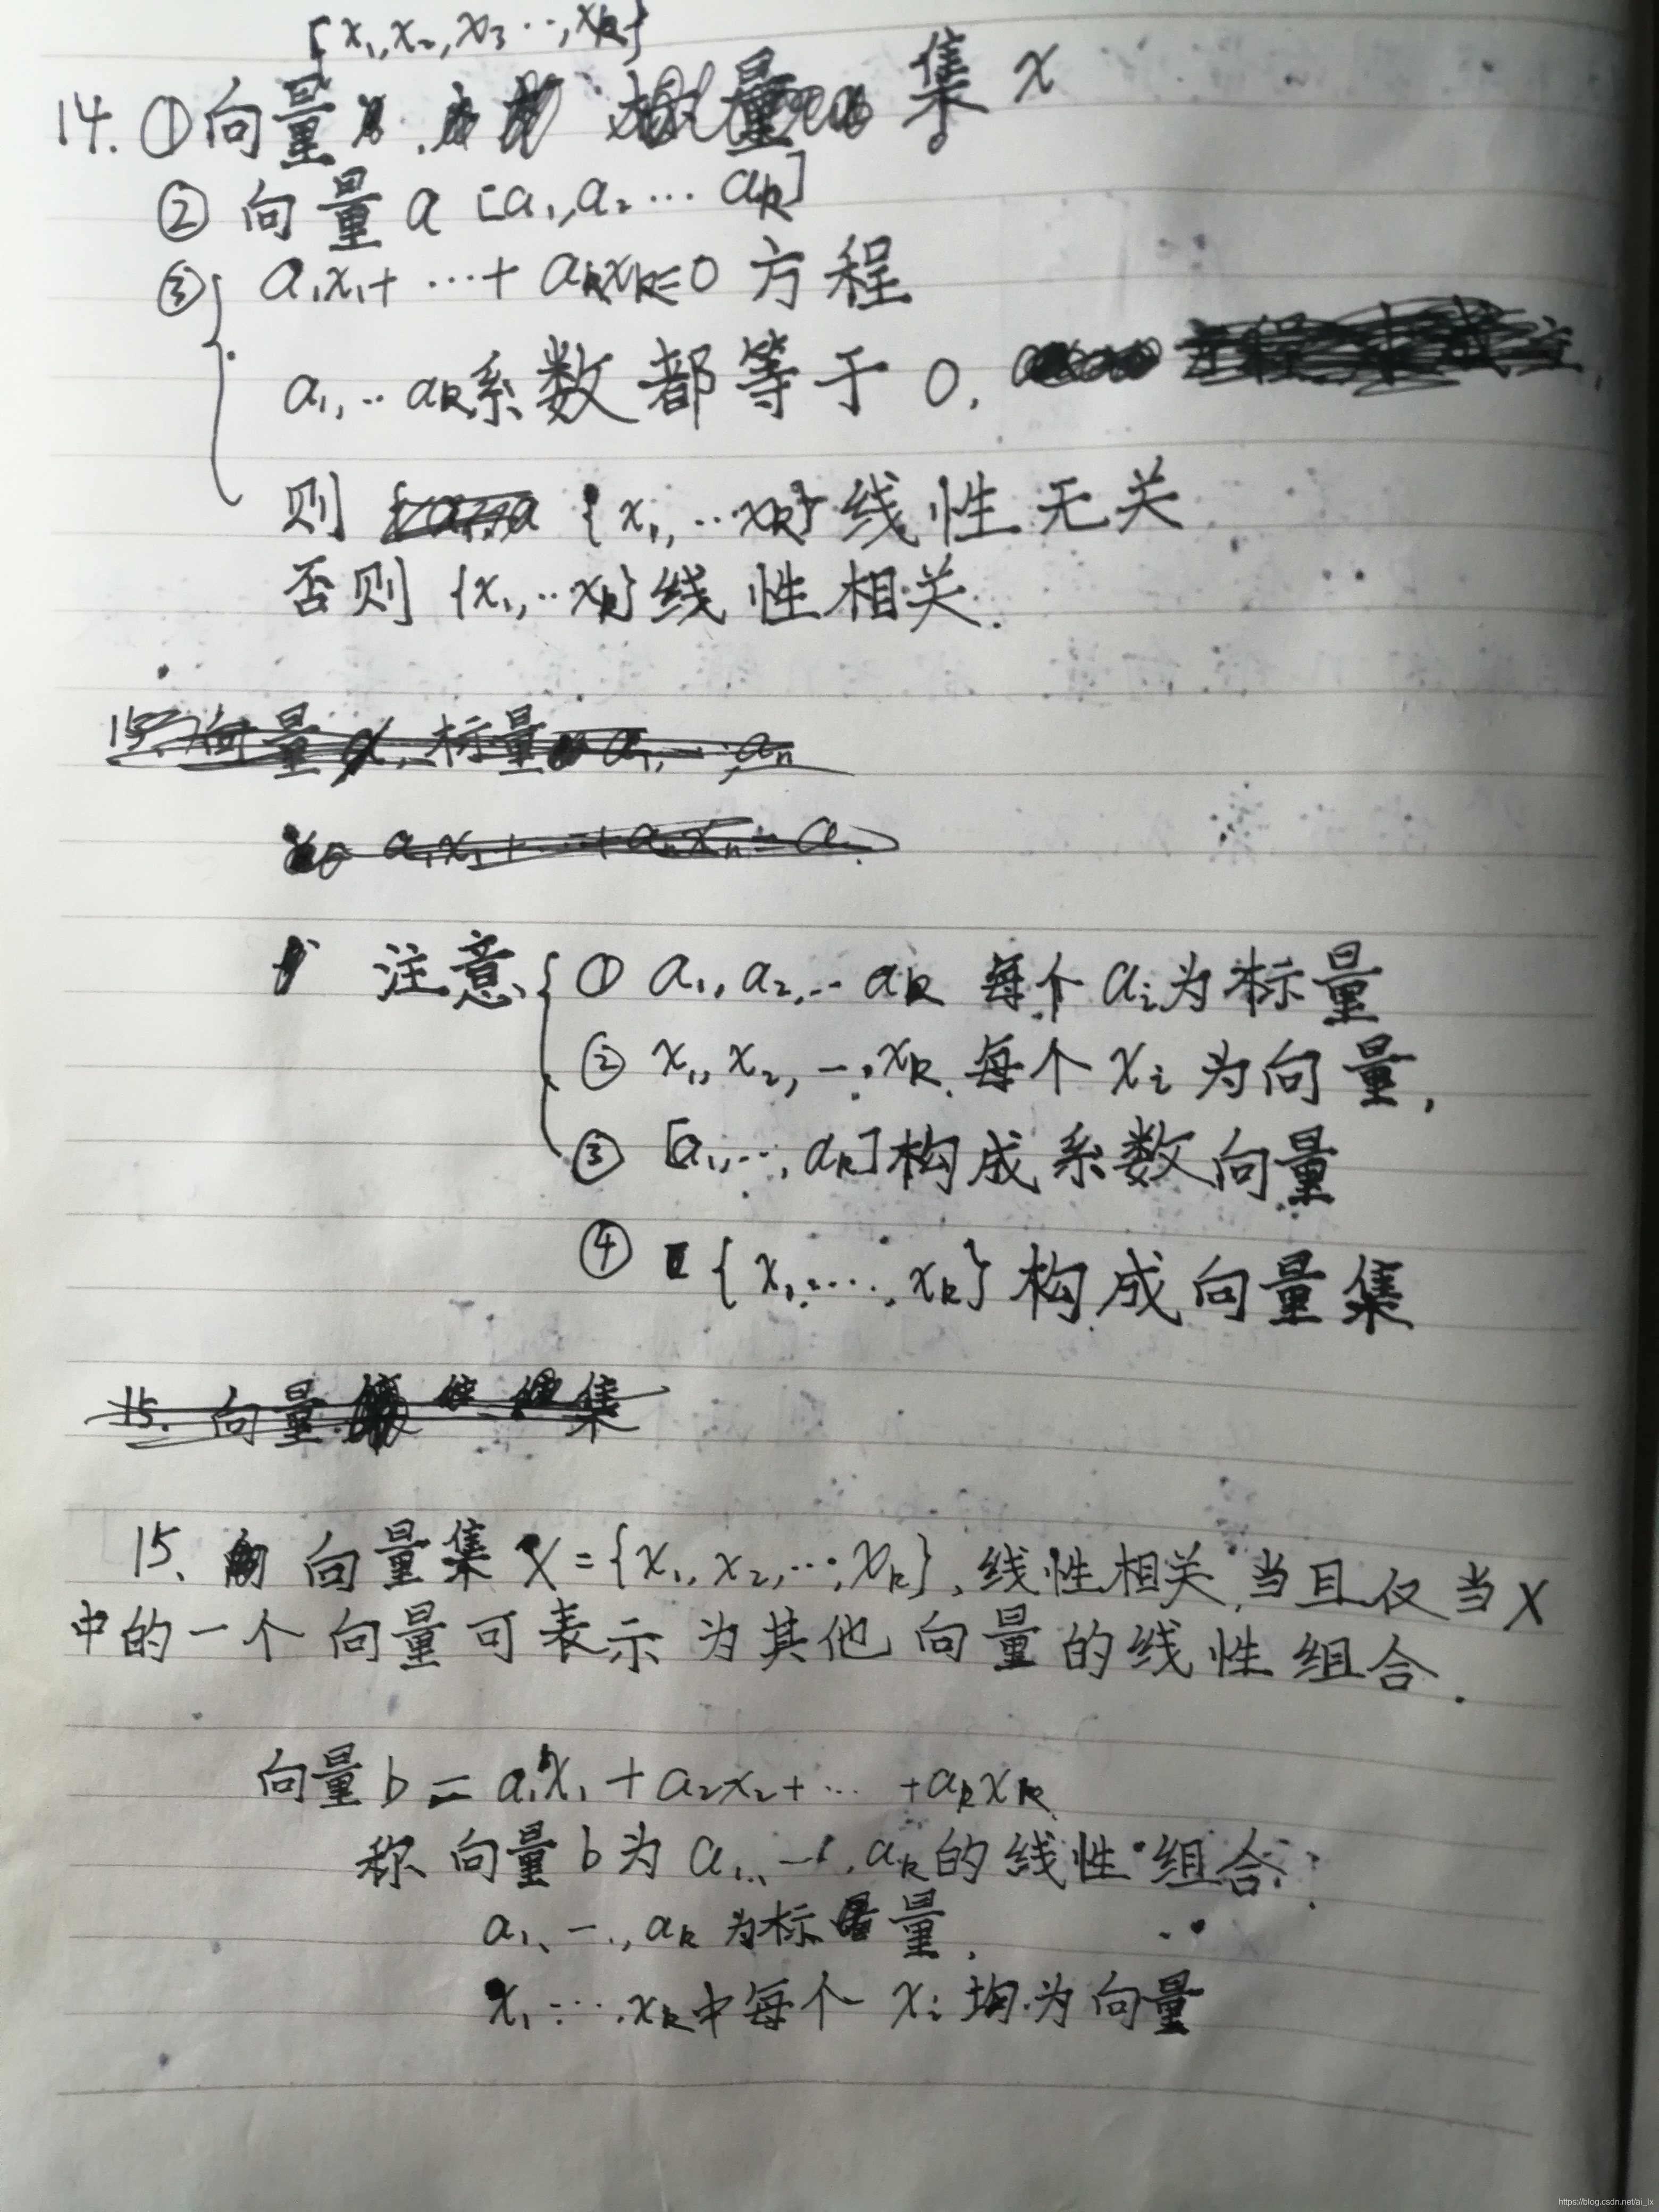 {x₁,x₂,x₃…,xk}
14. ①向量 集 x
② 向量 a [a₁,a₂… ak]
③ a₁x₁+ …+ akxk=0 方程
a₁,…ak系数都等于0,
则 {x₁,…xk}线性无关
否则 {x₁,…xk}线性相关.
15. 向量 , 标量 a₁,…,an
a₁x₁+…+anxn=a
注意 ① a₁,a₂,…ak 每个 aᵢ为标量
② x₁,x₂,…,xk 每个 xᵢ 为向量,
③ [a₁,…,ak]构成系数向量
④ {x₁,…,xk}构成向量集
15. 向量 集
15、 向量集 X={x₁,x₂,…,xk},线性相关,当且仅当X
中的一个向量可表示为其他向量的线性组合.
向量b = a₁x₁+a₂x₂+… +akxk
称向量b为a₁、…,ak的线性组合.
a₁、…,ak为标量,
x₁…,xk中每个 xᵢ 均为向量
https://blog.csdn.net/ai_lx